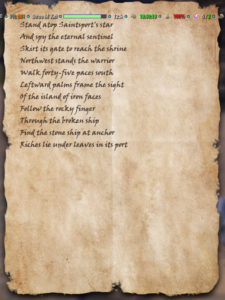 Stand atop Saintsport's star
And spy the eternal sentinel
Skirt its gate to reach the shrine
Northwest stands the warrior
Walk forty-five paces south
Leftward palms frame the sight
Of the island of iron faces
Follow the rocky finger
Through the broken ship
Find the stone ship at anchor
Riches lie under leaves in its port